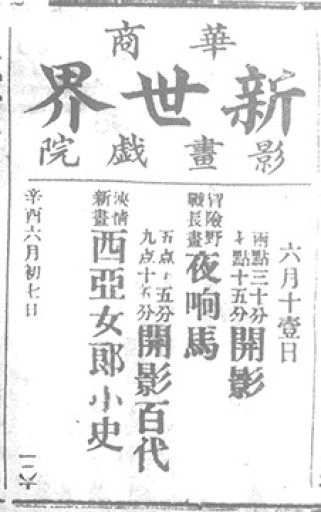 華商
新世界
影畫戲院
六月十壹日
兩點三十分
七點十五分
開影
冒險野
戰長畫
夜响馬
五点十五分
九点十五分
開影百代
俠情
新畫
西亞女郎小史
辛酉六月初七日